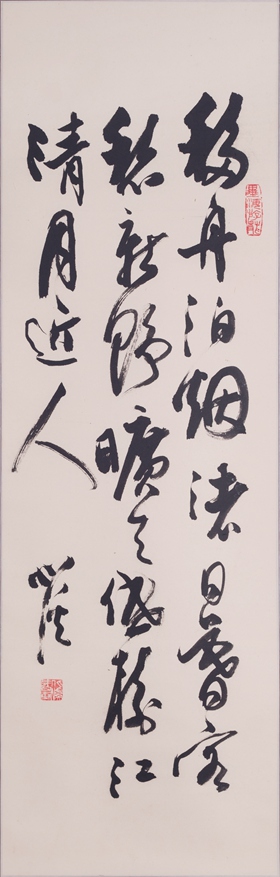 移舟泊烟渚日暮客
愁新野曠天低樹江
清月近人